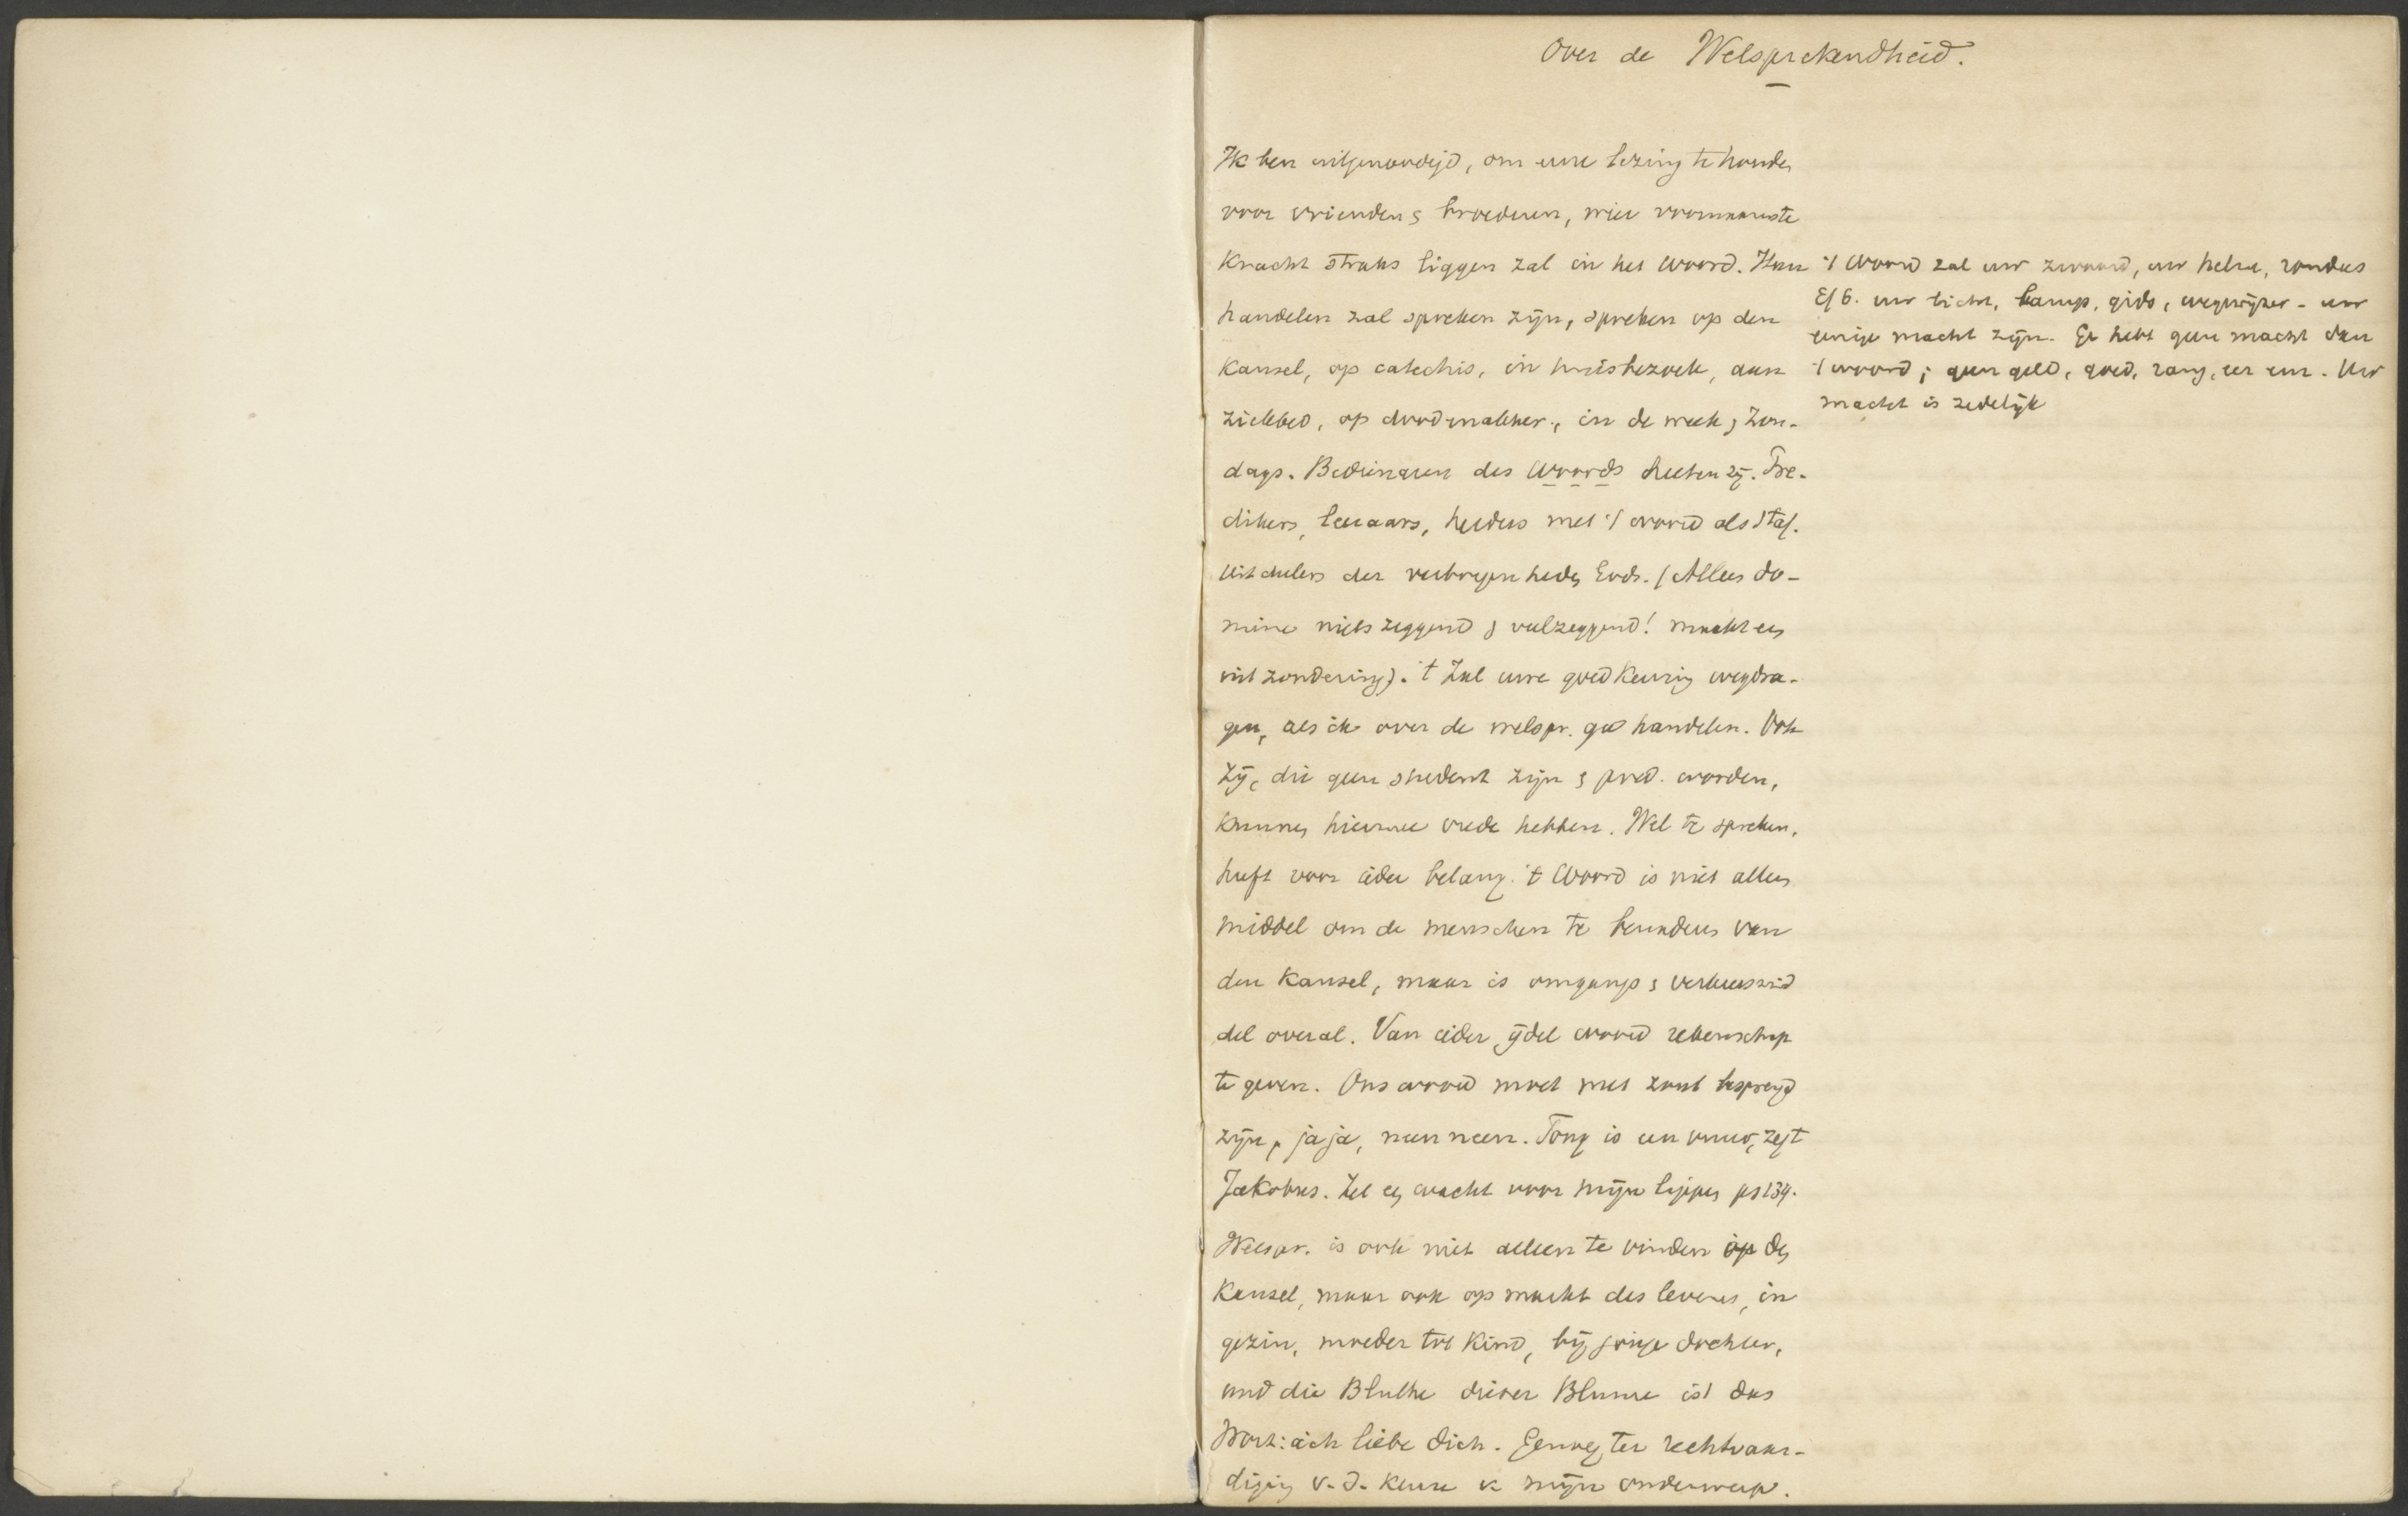 Over de Welsprekendheid.
Ik ben uitgenoodigd, om eene lezing te houden
voor vrienden & broederen, wier voornaamste
kracht straks liggen zal in het woord. Hun
handelen zal spreken zijn, spreken op den
kansel, op catechis, in huisbezoek, aan
ziekbed, op doodmalkher., in de week & Zon-
dags. Bedienaren des Woords heeten zij. Pre-
dikers, leeraars, herders met 't woord als staf.
Uitdeelers der verborgenheden Gods. (Alleen do-
mine niets zeggend & veelzeggend! maakt een
uitzondering). 't Zal uwe goedkeuring wegdra-
gen, als ik over de welspr. ga handelen. Ook
zij, die geen student zijn & pred. worden,
kunnen hiermee vrede hebben. Wel te spreken,
heeft voor ieder belang. 't Woord is niet alleen
middel om de menschen te
den kansel, maar is omgangs & verkeersmid
del overal. Van ieder ijdel woord rekenschap
te geven. Ons woord moet met zout besprengd
zijn, ja ja, neen neen. Tong is een vuur, zegt
Jakobus. Zet een wacht voor mijne lippen ps 134.
Welspr. is ook niet alleen te vinden op den
Kansel, maar ook op markt des levens, in
gezin, moeder tot kind, bij jonge dochter,
und die Bluthe dieser Blume ist das
Wort: ich liebe dich. Genoeg ter rechtvaar-
diging v. d. keuze v. mijn onderwerp.
't Woord zal uw zwaard, uw helm, rondas
Ef 6. uw licht, lamp, gids, wegwijzer - uw
eenige macht zijn. Ge hebt geen macht dan
't woord; geen geld, goed, rang, eer enz. Uw
macht is zedelijk